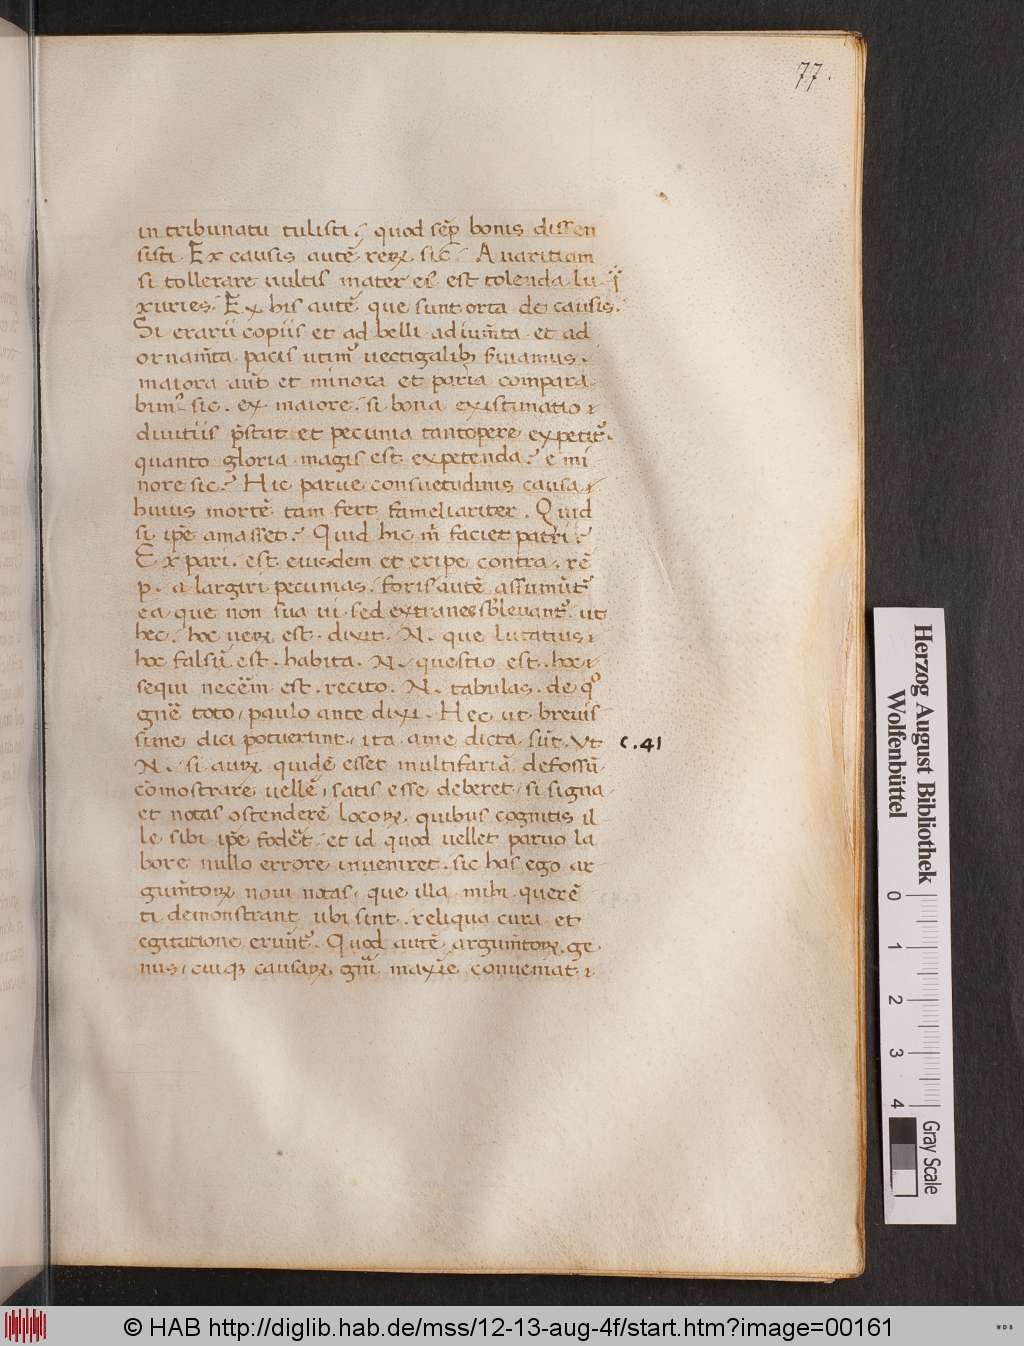 77.
in tribunatu tulisti? quod sēp bonis dissen
sisti. Ex causis autē rerꝝ sic. Auaritiam
si tollerare uultis mater eiꝰ est tolenda lu
xuries. Ex his autē que sunt orta de causis.
Si erarii copiis et ad belli adium̄ta et ad
ornam̄ta pacis utimr̄ uectigalibꝫ seruiamus.
maiora aut̄ et minora et paria compara
bimꝰ sic. ex maiore. si bona existimatio
diuitiis p̄stat et pecunia tantopere expetitr̄.
quanto gloria magis est expetenda? e mi
nore sic? Hic parue consuetudinis causa
huius mortē tam fert fameliariter. Quid
si ip̄e amasset? Quid hic m̄ faciet patri?
Ex pari. est eiusdem et eripe contra. rē
p. a largiri pecunias. foris autē assumūtr̄
ea que non sua ui sed extranea subleuantr̄. ut
hec. hoc uerꝝ est. dixit. N. que lutatius
hoc falsū est. habita. N. questio est. hoc
sequi necēm est. recito. N. tabulas. de qͦ
gnē toto paulo ante dixi. Hec ut breuis
sime dici potuerunt. ita a me dicta sūt. Vt
c. 41
N. si aurꝝ quidē esset multifariā defossū
cōmostrare uellē, satis esse deberet, si signa
et notas ostenderē locorꝝ, quibus cognitis il
le sibi ip̄e foderet et id quod uellet paruo la
bore nullo errore inueniret. sic has ego ar
gum̄torꝝ noui notas, que illa mihi querē
ti demonstrant ubi sint. reliqua cura et
cgitatione eruūtr̄. Quod autē argum̄torꝝ ge
nus, cuiqꝫ causarꝝ gn̄i maxīe conueniat
Herzog August Bibliothek
Wolfenbüttel
0 1 2 3 4
Gray Scale
© HAB http://diglib.hab.de/mss/12-13-aug-4f/start.htm?image=00161